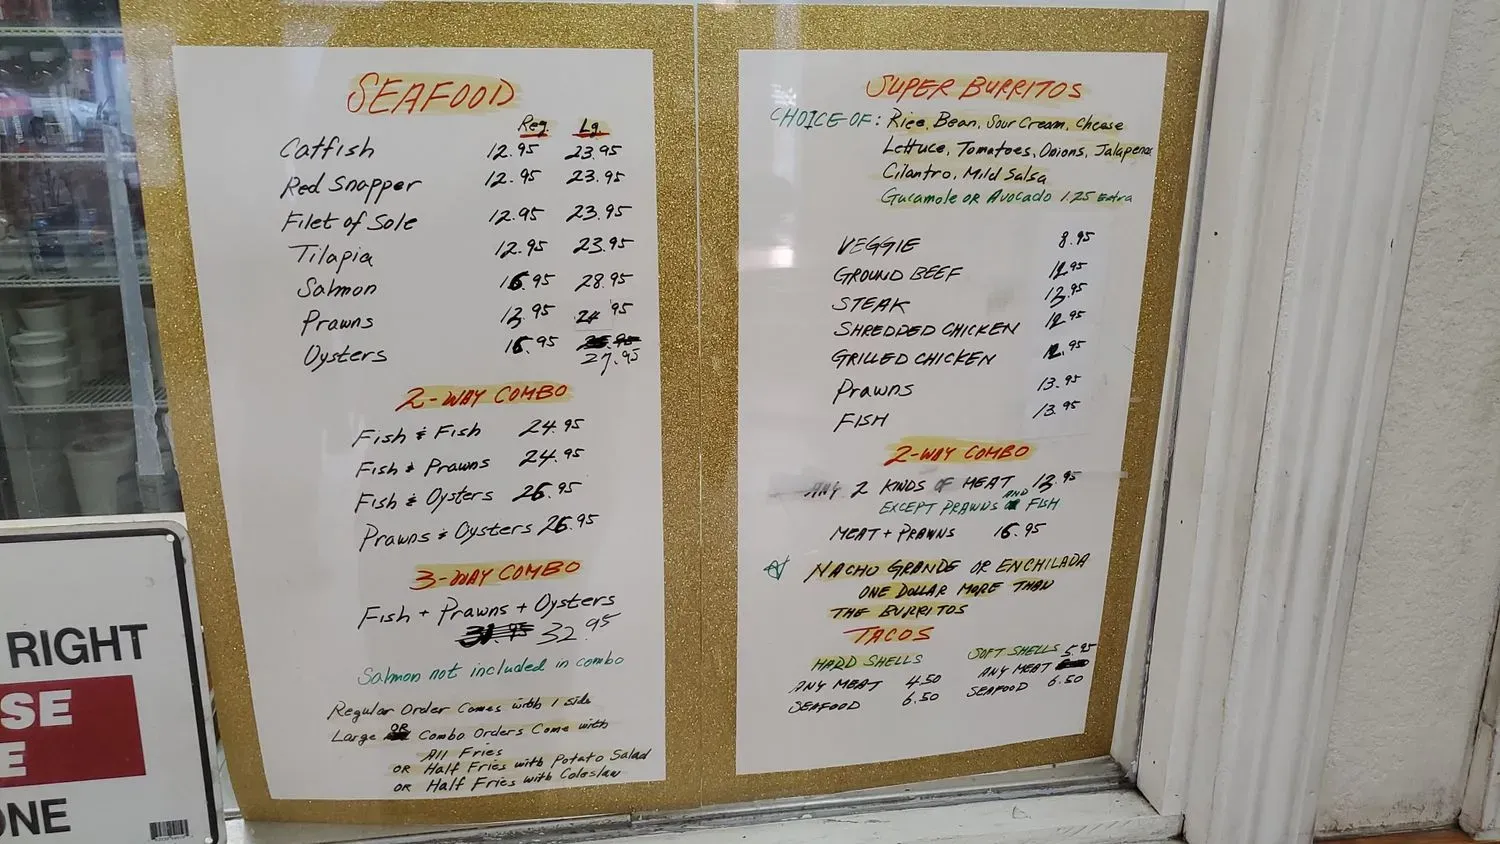 SEAFOOD
Reg. Lg.
Catfish 12.95 23.95
Red Snapper 12.95 23.95
Filet of Sole 12.95 23.95
Tilapia 12.95 23.95
Salmon 16.95 28.95
Prawns 13.95 24.95
Oysters 16.95
27.95
2-WAY COMBO
Fish & Fish 24.95
Fish & Prawns 24.95
Fish & Oysters 26.95
Prawns & Oysters 26.95
3-WAY COMBO
Fish + Prawns + Oysters
31.95 32.95
Salmon not included in combo
Regular Order Comes with 1 side
Large OR Combo Orders Come with
All Fries
OR Half Fries with Potato Salad
OR Half Fries with Coleslaw
SUPER BURRITOS
CHOICE OF: Rice, Bean, Sour Cream, Cheese
Lettuce, Tomatoes, Onions, Jalapenos
Cilantro, Mild Salsa
Gucamole OR Avocado 1.25 Extra
VEGGIE 8.95
GROUND BEEF 12.95
STEAK 13.95
SHREDDED CHICKEN 12.95
GRILLED CHICKEN 12.95
Prawns 13.95
FISH 13.95
2-WAY COMBO
ANY 2 KINDS OF MEAT 13.95
EXCEPT PRAWNS AND FISH
MEAT + PRAWNS 16.95
NACHO GRANDE OR ENCHILADA
ONE DOLLAR MORE THAN
THE BURRITOS
TACOS
HARD SHELLS
ANY MEAT 4.50
SEAFOOD 6.50
SOFT SHELLS 5.95
ANY MEAT
SEAFOOD 6.50
RIGHT
SE
E
ONE